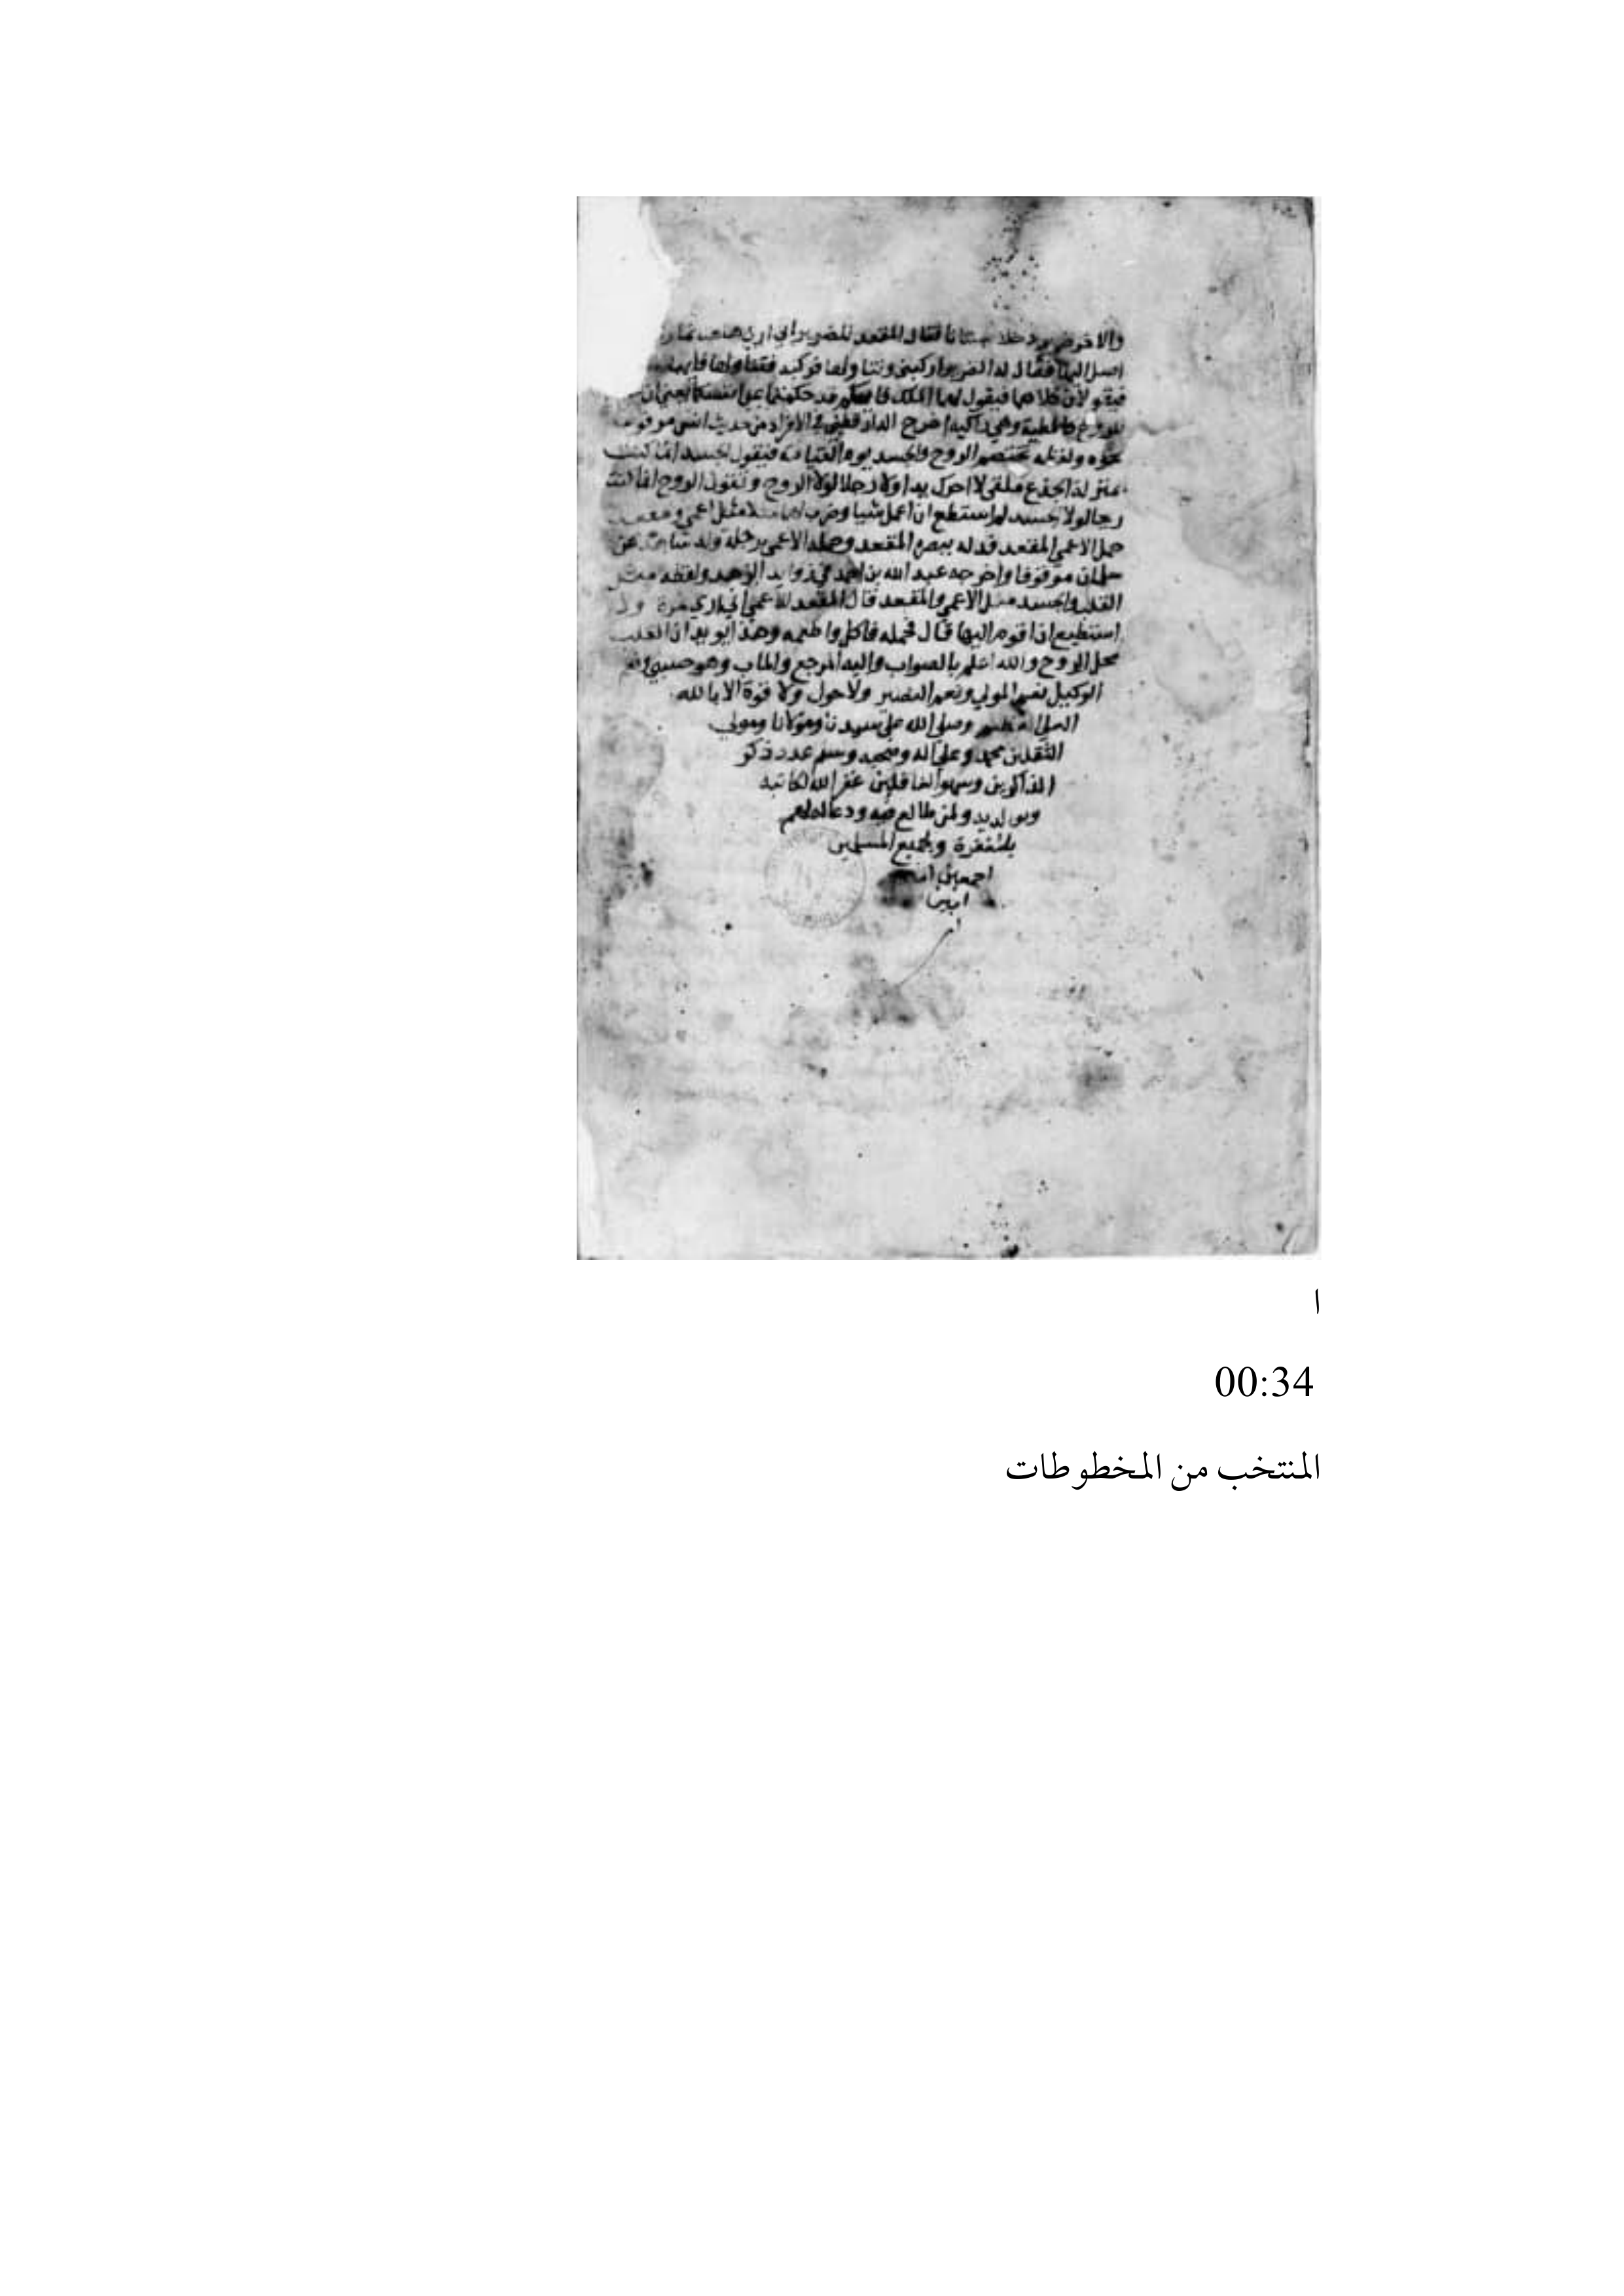 والاخر ضرير دخلا بستانا فقال المقعد للضرير اني اري ههنا ثمارا
اصل اليها فقال له الضرير اركبني وتناولها فركبه فتناولها فايهما
فيقولان كلاهما فيقول لهما الملك فانكم قد حكمتما علي انفسكما يعني ان
للروح كالمطية وهي راكبه اخرج الدارقطني في الافراد من حديث انس موقوفا
نحوه ولفظه تختصم الروح والجسد يوم القيامة فيقول الجسد انما كنت
بمنزلة الجذع ملقي لا احرك يدا ولا رجلا لولا الروح وتقول الروح انما كنت
ريحا لولا الجسد لم استطع ان اعمل شيا وضرب لهما مثل اعمي ومقعد
حمل الاعمي المقعد فدله ببصره المقعد وحمله الاعمي برجله وله شاهد عن
سلمان موقوفا واخرجه عبد الله بن احمد في زوايد الزهد ولفظه مثل
القلب والجسد مثل الاعمي والمقعد قال المقعد للاعمي اني اري ثمرة ولا
استطيع ان اقوم اليها قال فحمله فاكل واطعمه وهذا يويد ان القلب
محل الروح والله اعلم بالصواب واليه المرجع والماب وهو حسبي ونعم
الوكيل نعم المولي ونعم النصير ولا حول ولا قوة الا بالله
العلي العظيم وصلي الله علي سيدنا ومولانا ومولي
الثقلين محمد وعلي اله وصحبه وسلم عدد ذكر
الذاكرين وسهو الغافلين غفر الله لكاتبه
ولوالديه ولمن طالع فيه ودعا لهم
بالمغفرة ولجميع المسلمين
اجمعين امين
امين
ا
00:34
المنتخب من المخطوطات